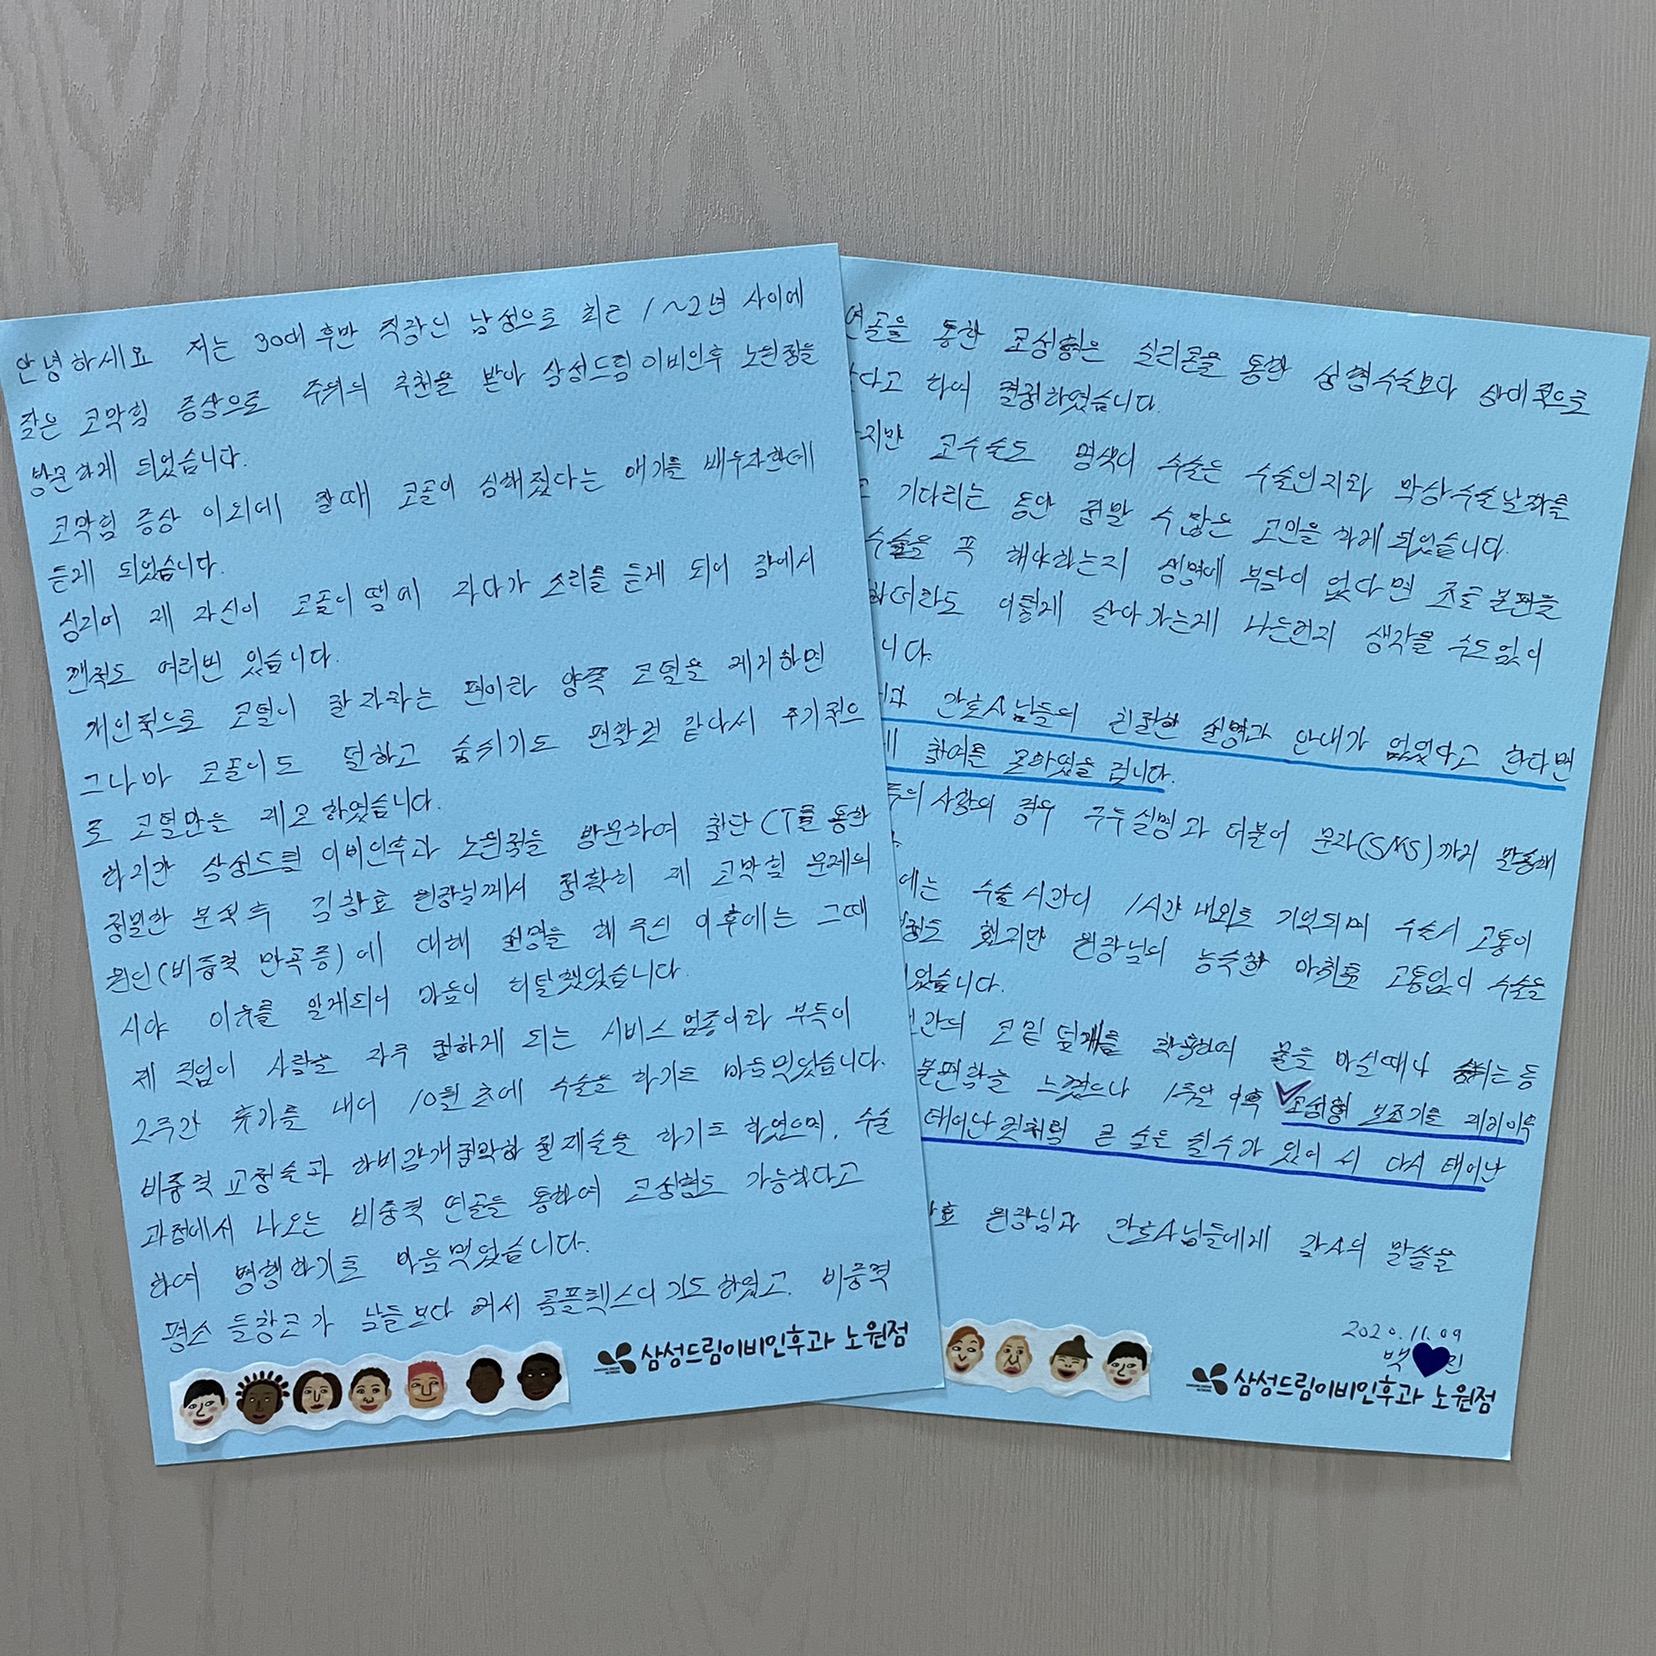 안녕하세요 저는 30대 후반 직장인 남성으로 최근 1~2년 사이에
잦은 코막힘 증상으로 주위의 추천을 받아 삼성드림이비인후 노원점을
방문하게 되었습니다.
코막힘 증상 이외에 잘때 코골이 심해졌다는 얘기를 배우자한테
듣게 되었습니다.
심지어 제 자신이 코골이 땜에 자다가 소리를 듣게 되어 잠에서
깬적도 여러번 있습니다.
개인적으로 코털이 잘 자라는 편이라 양쪽 코털을 제거하면
그나마 코골이도 덜하고 숨쉬기도 편할것 같다서 주기적으
로 코털만을 제모하였습니다.
하지만 삼성드림 이비인후과 노원점을 방문하여 첨단 CT를 통한
정밀한 분석후 김창효 원장님께서 정확히 제 코막힘 문제의
원인(비중격 만곡증)에 대해 설명을 해 주신 이후에는 그때
서야 이유를 알게되어 마음이 허탈했었습니다.
제 직업이 사람을 자주 접하게 되는 서비스업종이라 부득이
2주간 휴가를 내어 10월 초에 수술을 하기로 마음먹었습니다.
비중격 교정술과 하비갑개점막하 절제술을 하기로 하였으며, 수술
과정에서 나오는 비중격 연골을 통하여 코성형도 가능하다고
하여 병행하기로 마음먹었습니다.
평소 들창코가 남들보다 커서 콤플렉스이기도 하였고, 비중격
삼성드림이비인후과 노원점
연골을 통한 코성형은 실리콘을 통한 성형수술보다 상대적으로
다고 하여 결정하였습니다.
지만 코수술도 명색이 수술은 수술인지라 막상 수술날짜를
기다리는 동안 정말 수많은 고민을 하게 되었습니다.
수술을 꼭 해야하는지 생명에 부담이 없다면 조금 불편을
하더라도 이렇게 살아가는게 나은건지 생각을 수도없이
니다.
간호사님들의 친절한 설명과 안내가 없었다고 한다면
참여를 못하였을 겁니다.
의 사람의 경우 구두설명과 더불어 문자(SMS)까지 발송해
에는 수술시간이 1시간 내외로 기억되며 수술시 고통이
했지만 원장님의 능숙한 마취로 고통없이 수술을
었습니다.
간의 코 밑 덮개를 착용하여 물을 마실때나 숨쉬는 등
불편함을 느꼈으나 1주일 이후 코성형 보조기를 제거이후
태어난것처럼 큰 숨을 쉴수가 있어서 다시 태어난
효 원장님과 간호사님들에게 감사의 말씀을
2020.11.09
백 진
삼성드림이비인후과 노원점